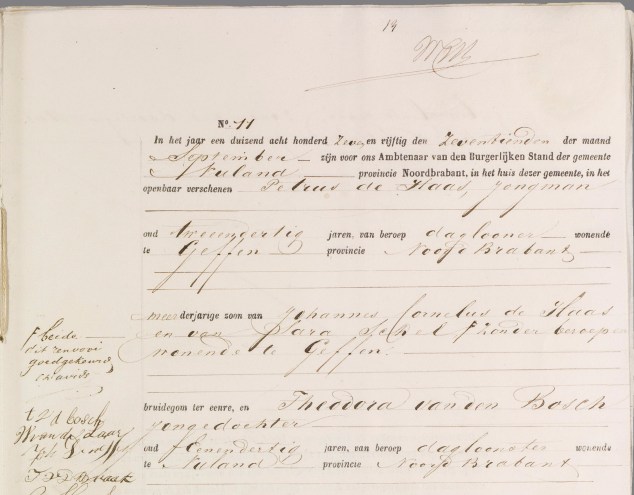 19
No. 11
In het jaar een duizend acht honderd zeven en vijftig den zeventienden der maand
September zijn voor ons Ambtenaar van den Burgerlijken Stand der gemeente
Nuland provincie Noordbrabant, in het huis dezer gemeente, in het
openbaar verschenen Petrus de Haas, jongman
oud tweeendertig jaren, van beroep daglooner wonende
te Geffen provincie Noord Brabant
meerderjarige zoon van Johannes Cornelus de Haas
en van zonder beroep
wonende te Geffen
beide
dit renvooi
goedgekeurd
bruidegom ter eenre, en Theodora van den Bosch
jongedochter
oud eenendertig jaren, van beroep dagloonster wonende
te Nuland provincie Noord Brabant
vd bosch